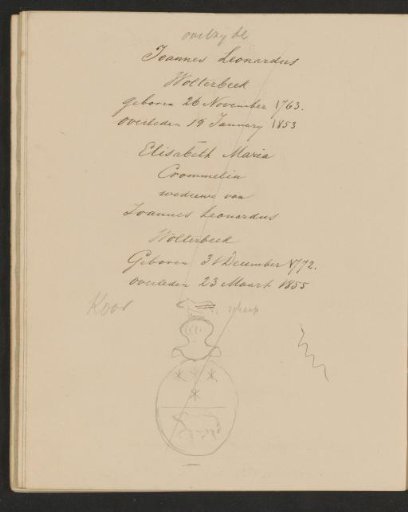 Joannes Leonardus
Wolterbeek
geboren 26 November 1763.
overleden 19 January 1853
Elisabeth Maria
Crommelin
weduwe van
Joannes Leonardus
Wolterbeek
Geboren 31 December 1772.
overleden 23 Maart 1855